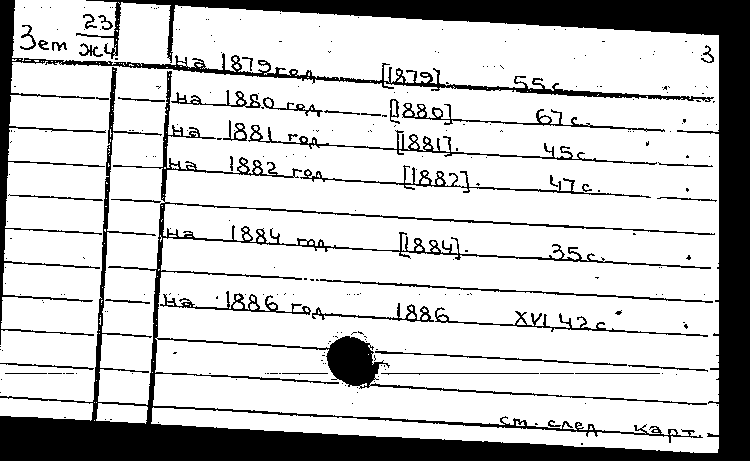 23
Зет Ж4
3
на 1879 год [1879]. 55 с.
на 1880 год [1880] 67 с.
на 1881 год [1881]. 45 с.
на 1882 год [1882]. 47 с.
на 1884 год. [1884]. 35 с.
на 1886 год 1886 XVI, 42 с.
см. след карт.